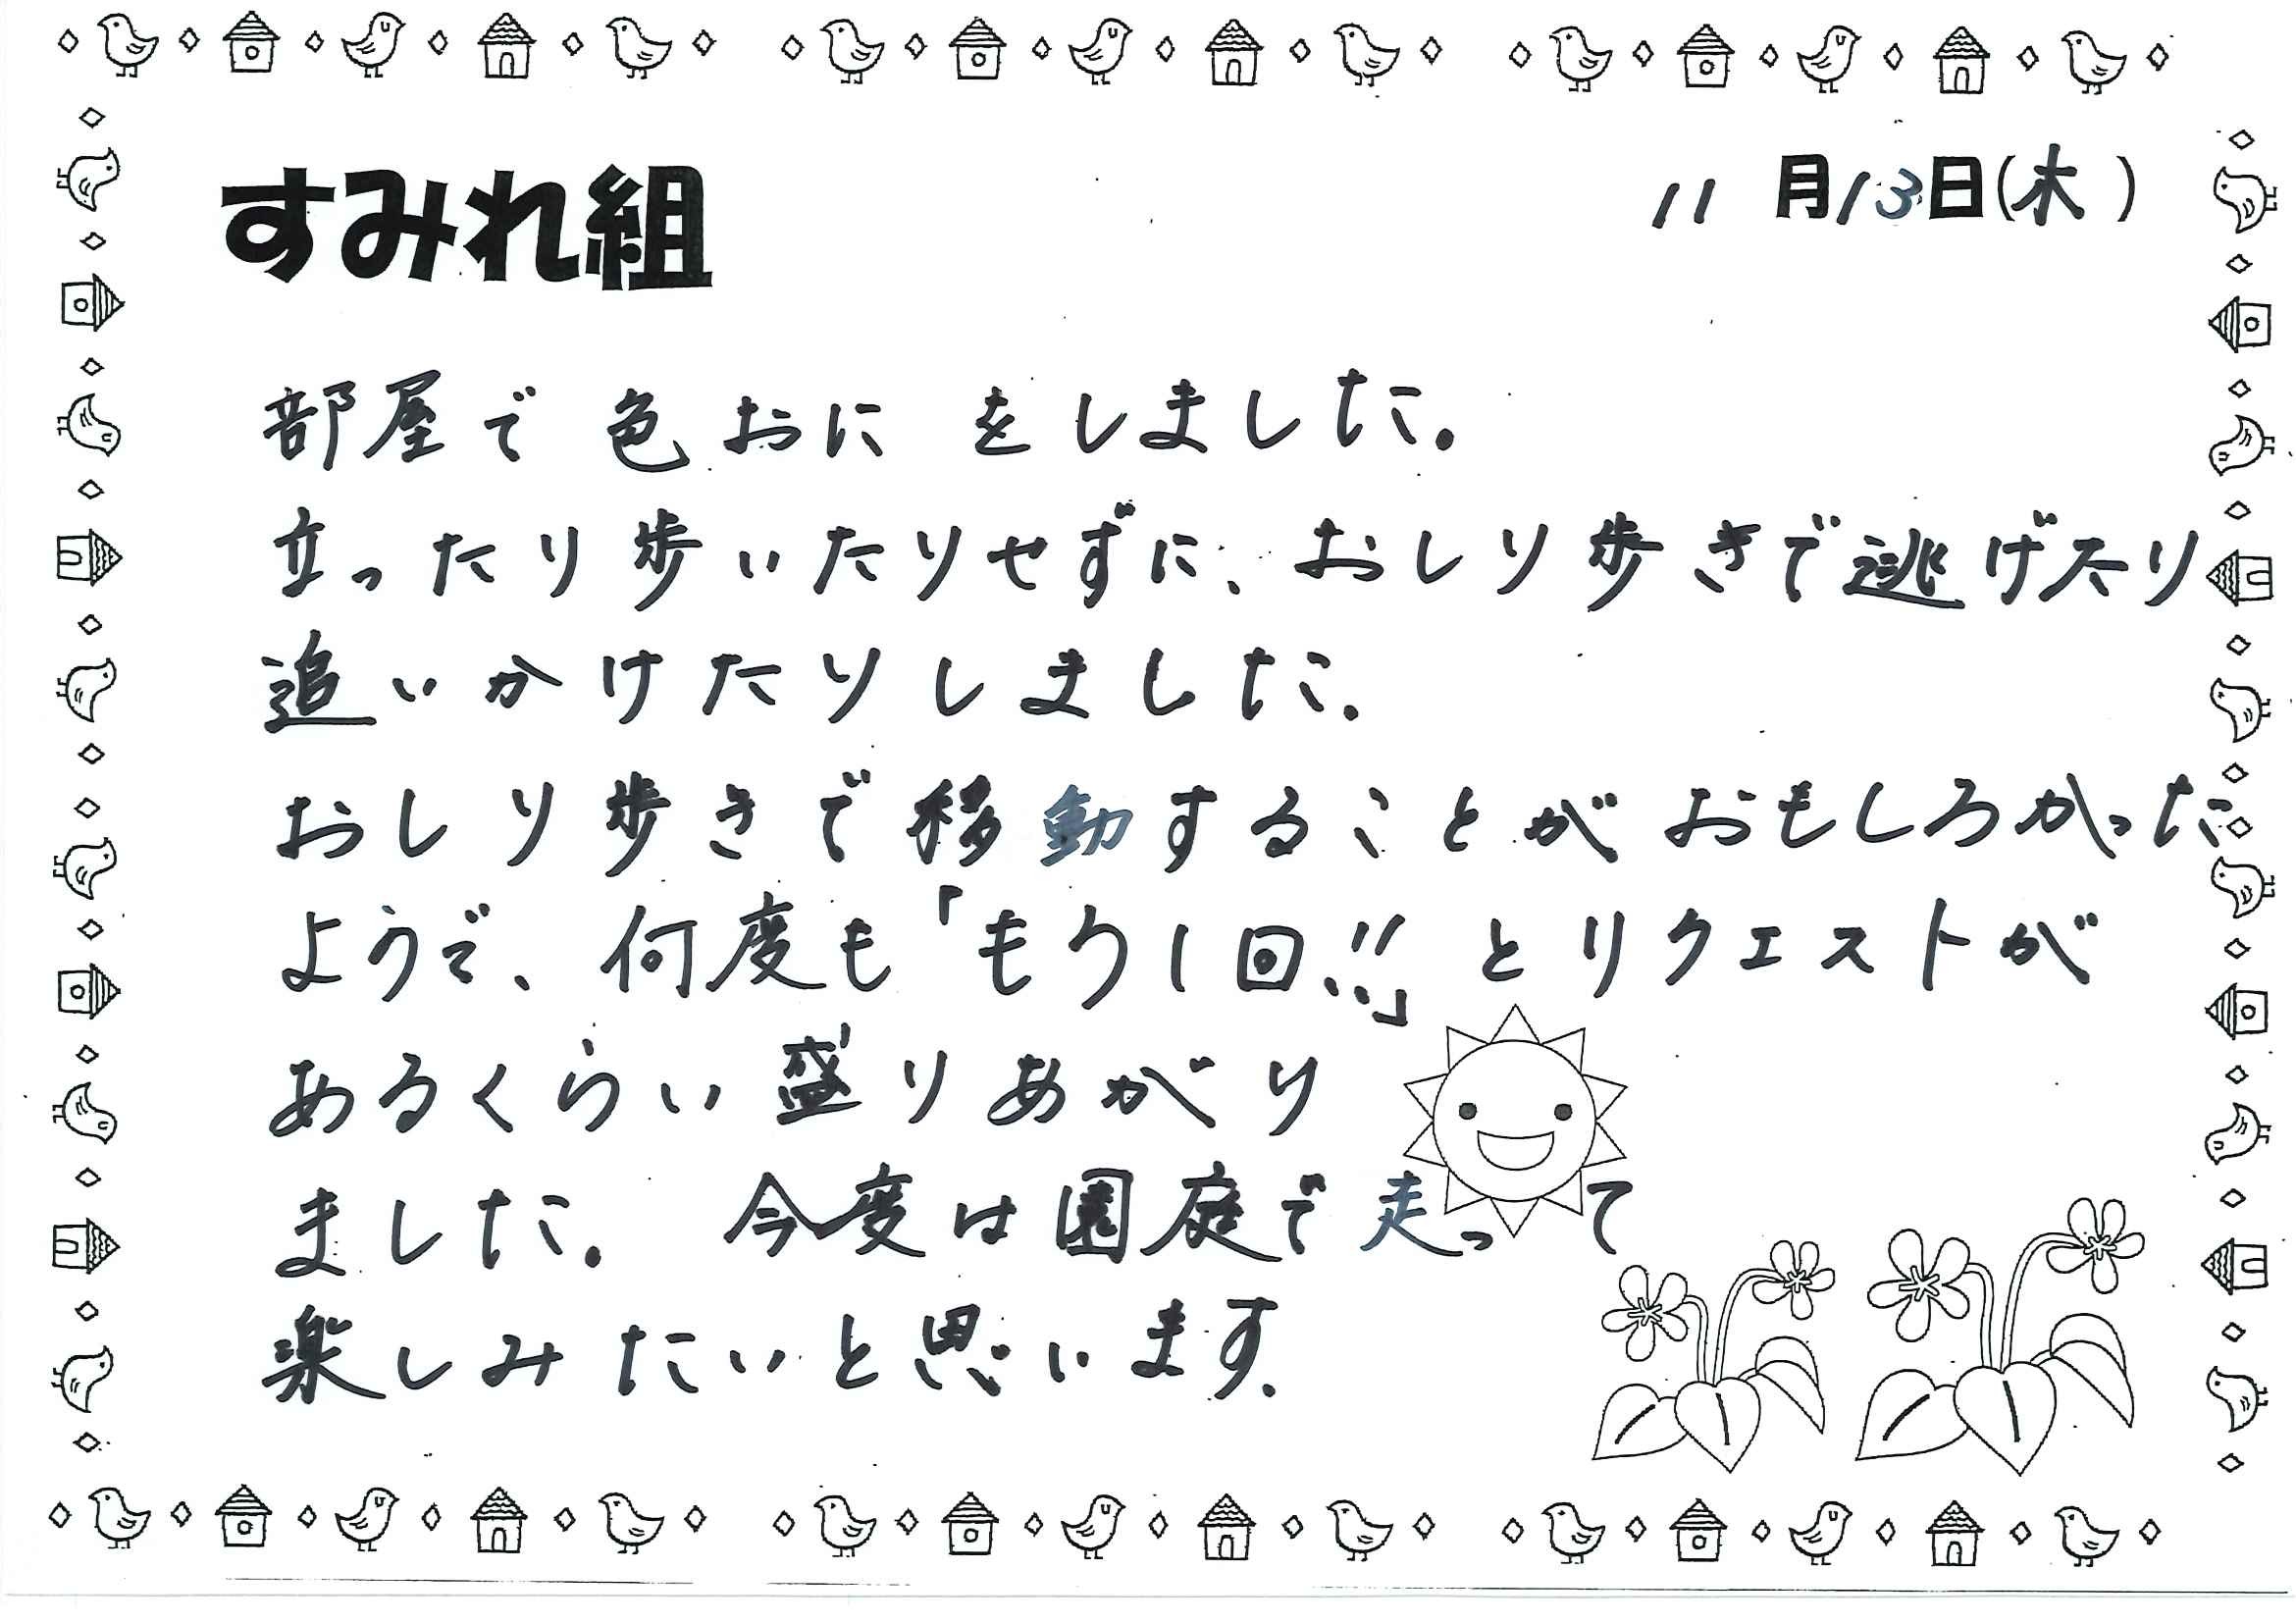 すみれ組
11月13日(木)
部屋で色おにをしました。
立ったり歩いたりせずに、おしり歩きで逃げたり
追いかけたりしました。
おしり歩きで移動することがおもしろかった
ようで、何度も「もう1回!!」とリクエストが
あるくらい盛りあがり
ました。今度は園庭で走って
楽しみたいと思います。